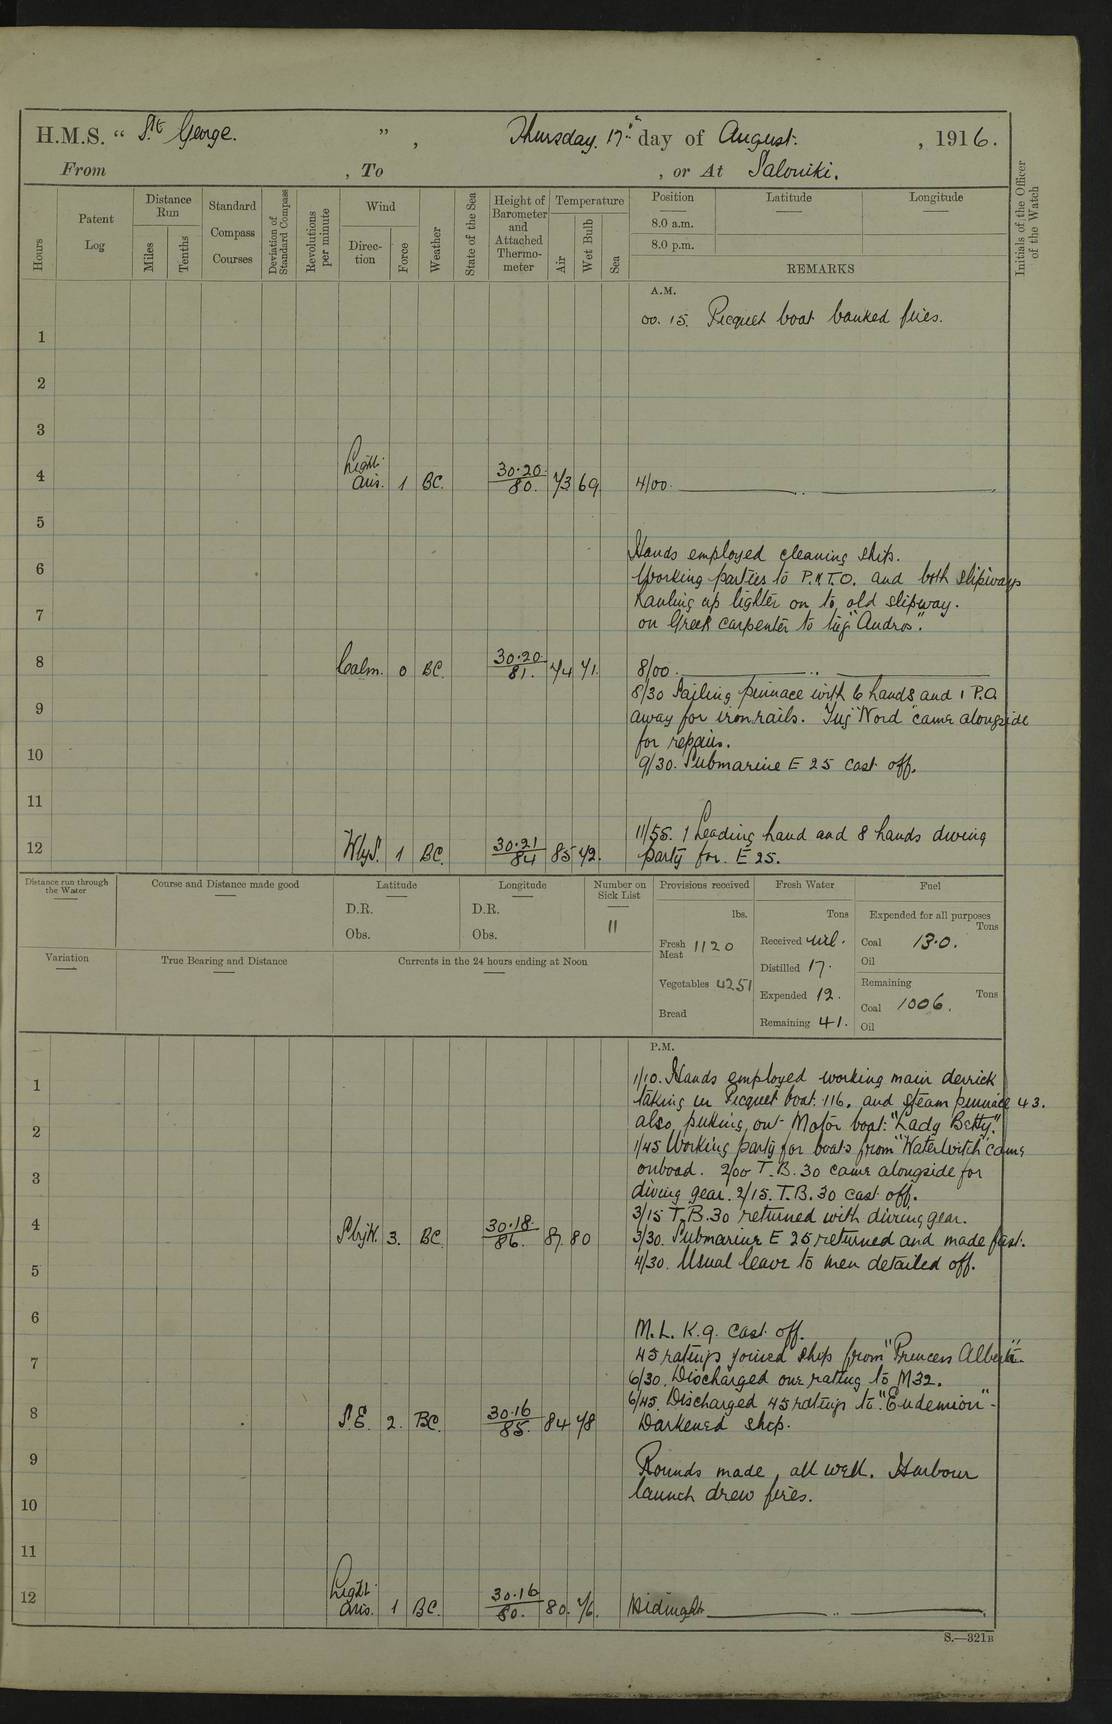 H.M.S. " St. George. " , Thursday. 17th day of August. , 1916.
From , To , or At Saloniki.
Hours
Patent Log
Distance Run
Miles
Tenths
Standard Compass Courses
Deviation of Standard Compass
Revolutions per minute
Wind
Direc-tion
Force
Weather
State of the Sea
Height of Barometer and Attached Thermo-meter
Temperature
Air
Wet Bulb
Sea
Position
Latitude
Longitude
8.0 a.m.
8.0 p.m.
REMARKS
Initials of the Officer of the Watch
A.M.
00.15. Picquet boat banked fires.
1
2
3
4 Light airs. 1 BC. 30.20/80. 73 69 4/00.
5
Hands employed cleaning ship.
6 Working parties to P.N.T.O. and both slipways
7 hauling up lighter on to old slipway.
on Greek carpenter to tug "Andros".
8 Calm. 0 BC. 30.20/81. 74 71. 8/00.
8/30 Sailing pinnace with 6 hands and 1 P.O.
9 away for iron rails. Tug "Nord" came alongside
for repairs.
10 9/30. Submarine E 25 cast off.
11
11/55. 1 Leading hand and 8 hands diving
12 WbyS. 1 BC. 30.21/84 85 72. party for E 25.
Distance run through the Water
Course and Distance made good
Latitude
D.R.
Obs.
Longitude
D.R.
Obs.
Number on Sick List
11
Provisions received
lbs.
Fresh Meat 1120
Vegetables 4251
Bread
Fresh Water
Tons
Received nil.
Distilled 17.
Expended 12.
Remaining 41.
Fuel
Expended for all purposes
Tons
Coal 13.0.
Oil
Remaining
Tons
Coal 1006.
Oil
Variation
True Bearing and Distance
Currents in the 24 hours ending at Noon
P.M.
1 1/10. Hands employed working main derrick
taking in Picquet boat 116. and steam pinnace 43.
also putting out Motor boat "Lady Betty."
2 1/45 Working party for boats from "Waterwitch" came
onboad. 2/00 T.B. 30 came alongside for
3 diving gear. 2/15. T.B. 30 cast off.
3/15 T.B. 30 returned with diving gear.
4 SbyW. 3. BC. 30.18./86. 87. 80 3/30. Submarine E 25 returned and made fast.
5 4/30. Usual leave to men detailed off.
6
M.L. K.9. cast off.
7 45 ratings joined ship from "Princess Alberta".
6/30. Discharged one rating to M32.
6/45. Discharged 45 ratings to "Endemion"-
8 S.E. 2. BC. 30.16/85. 84 78 Darkened ship.
9
Rounds made, all well. Harbour
10 launch drew fires.
11
12 Light airs. 1 BC. 30.16/80. 80. 76. Midnight
S.—321B